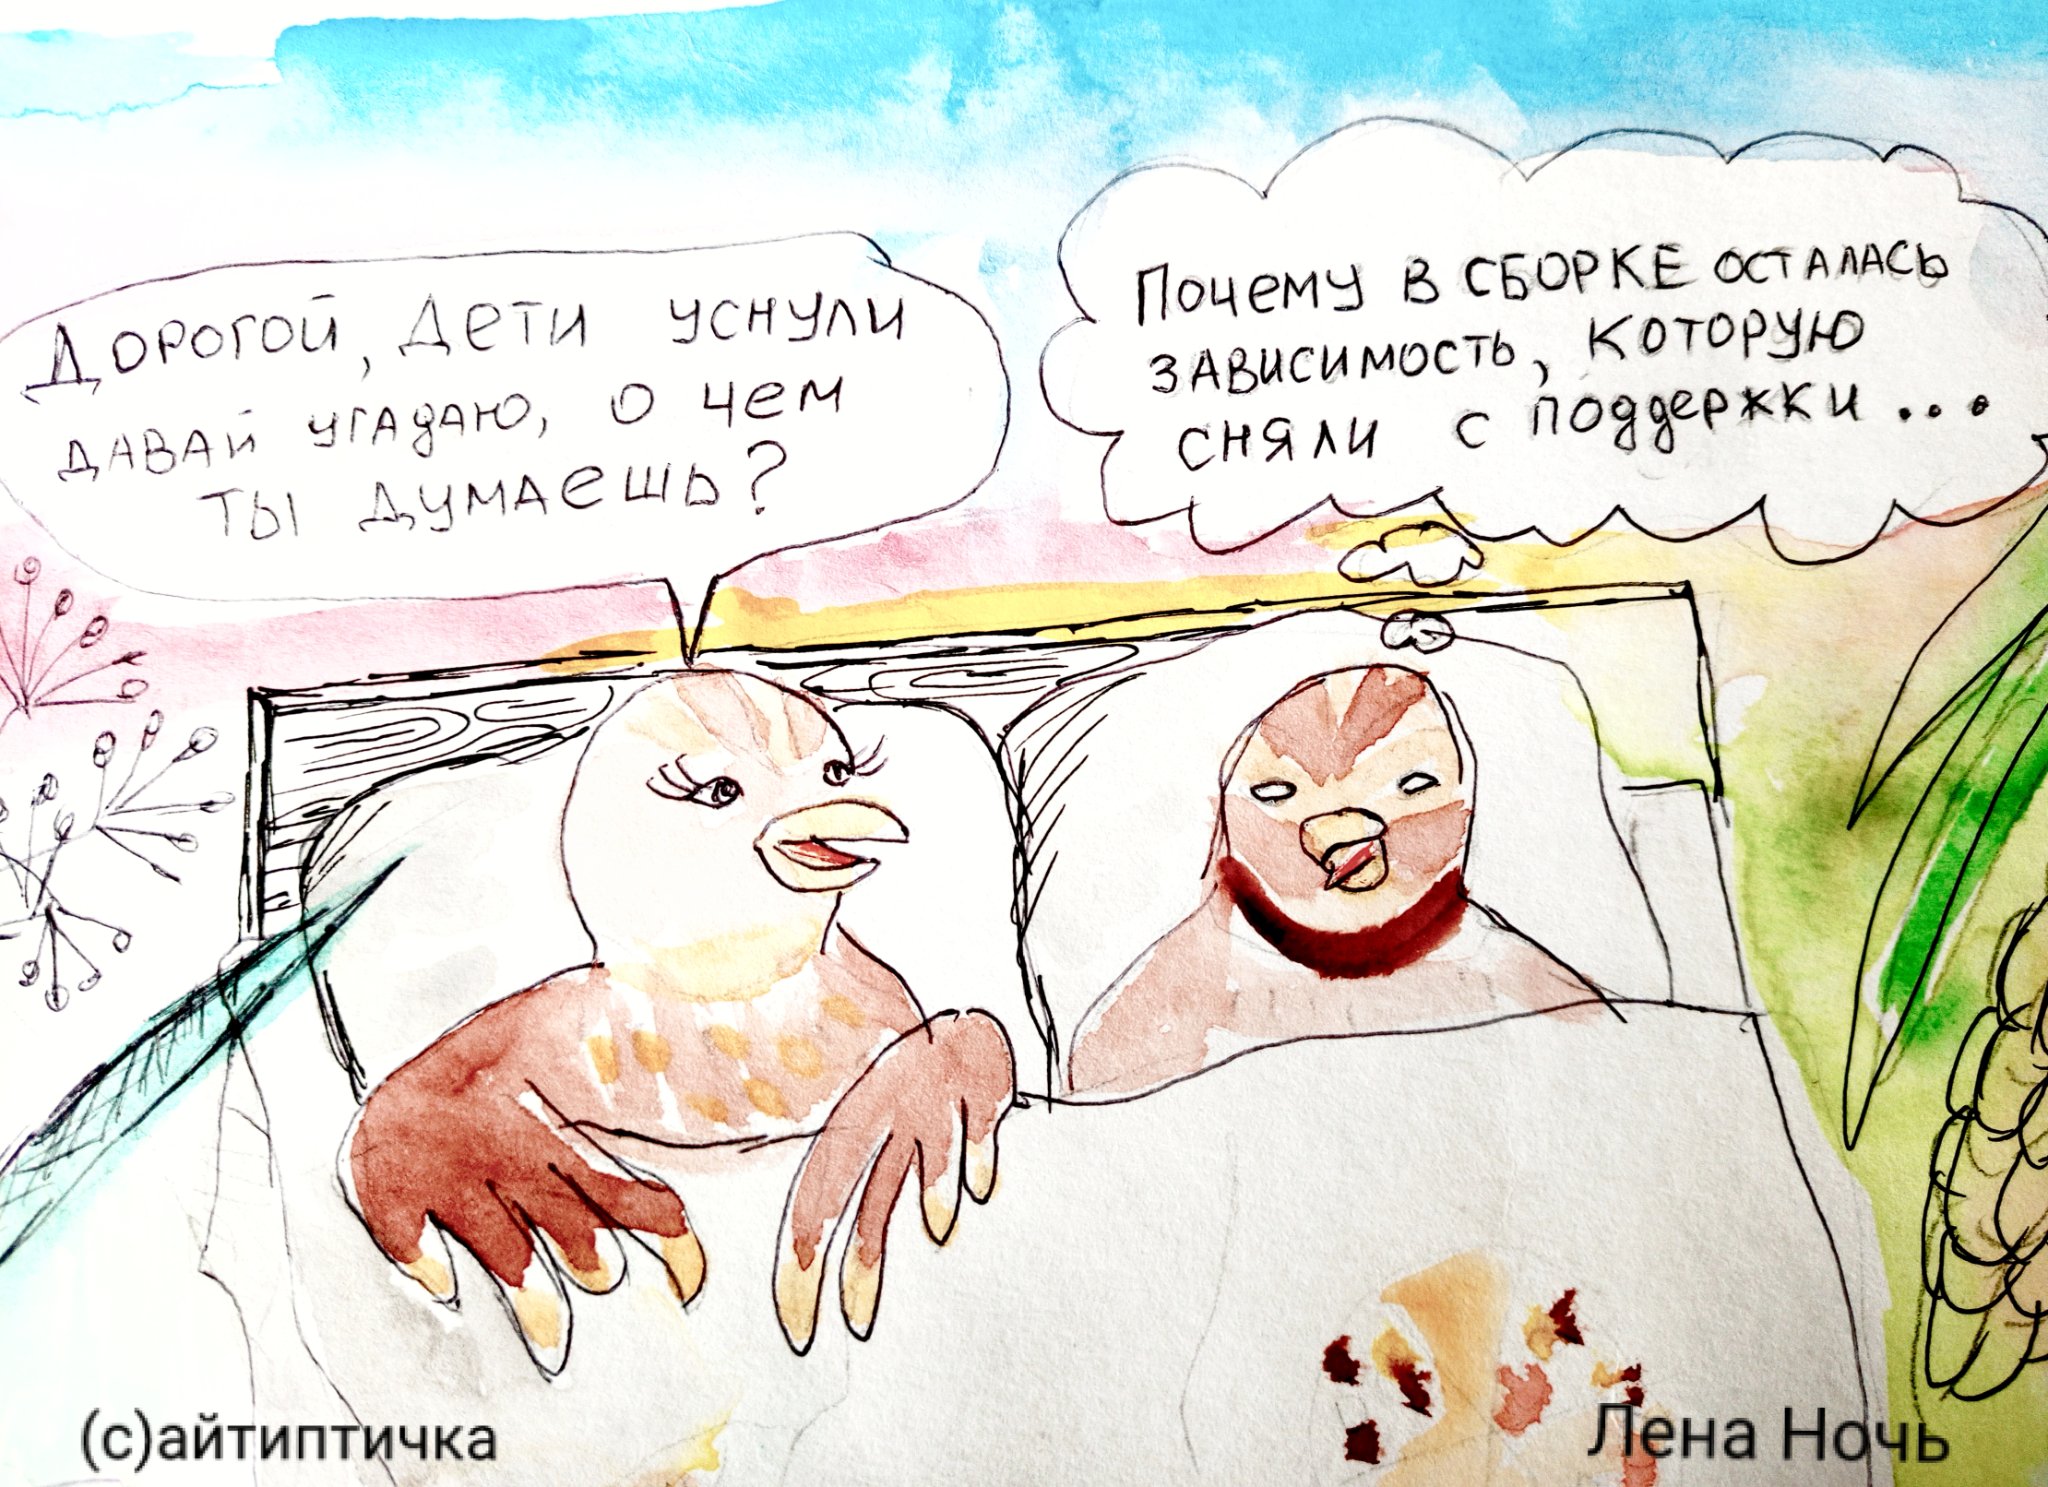 Дорогой, дети уснули
давай угадаю, о чем
ты думаешь?
Почему в сборке осталась
зависимость, которую
сняли с поддержки...
(с)айтиптичка
Лена Ночь